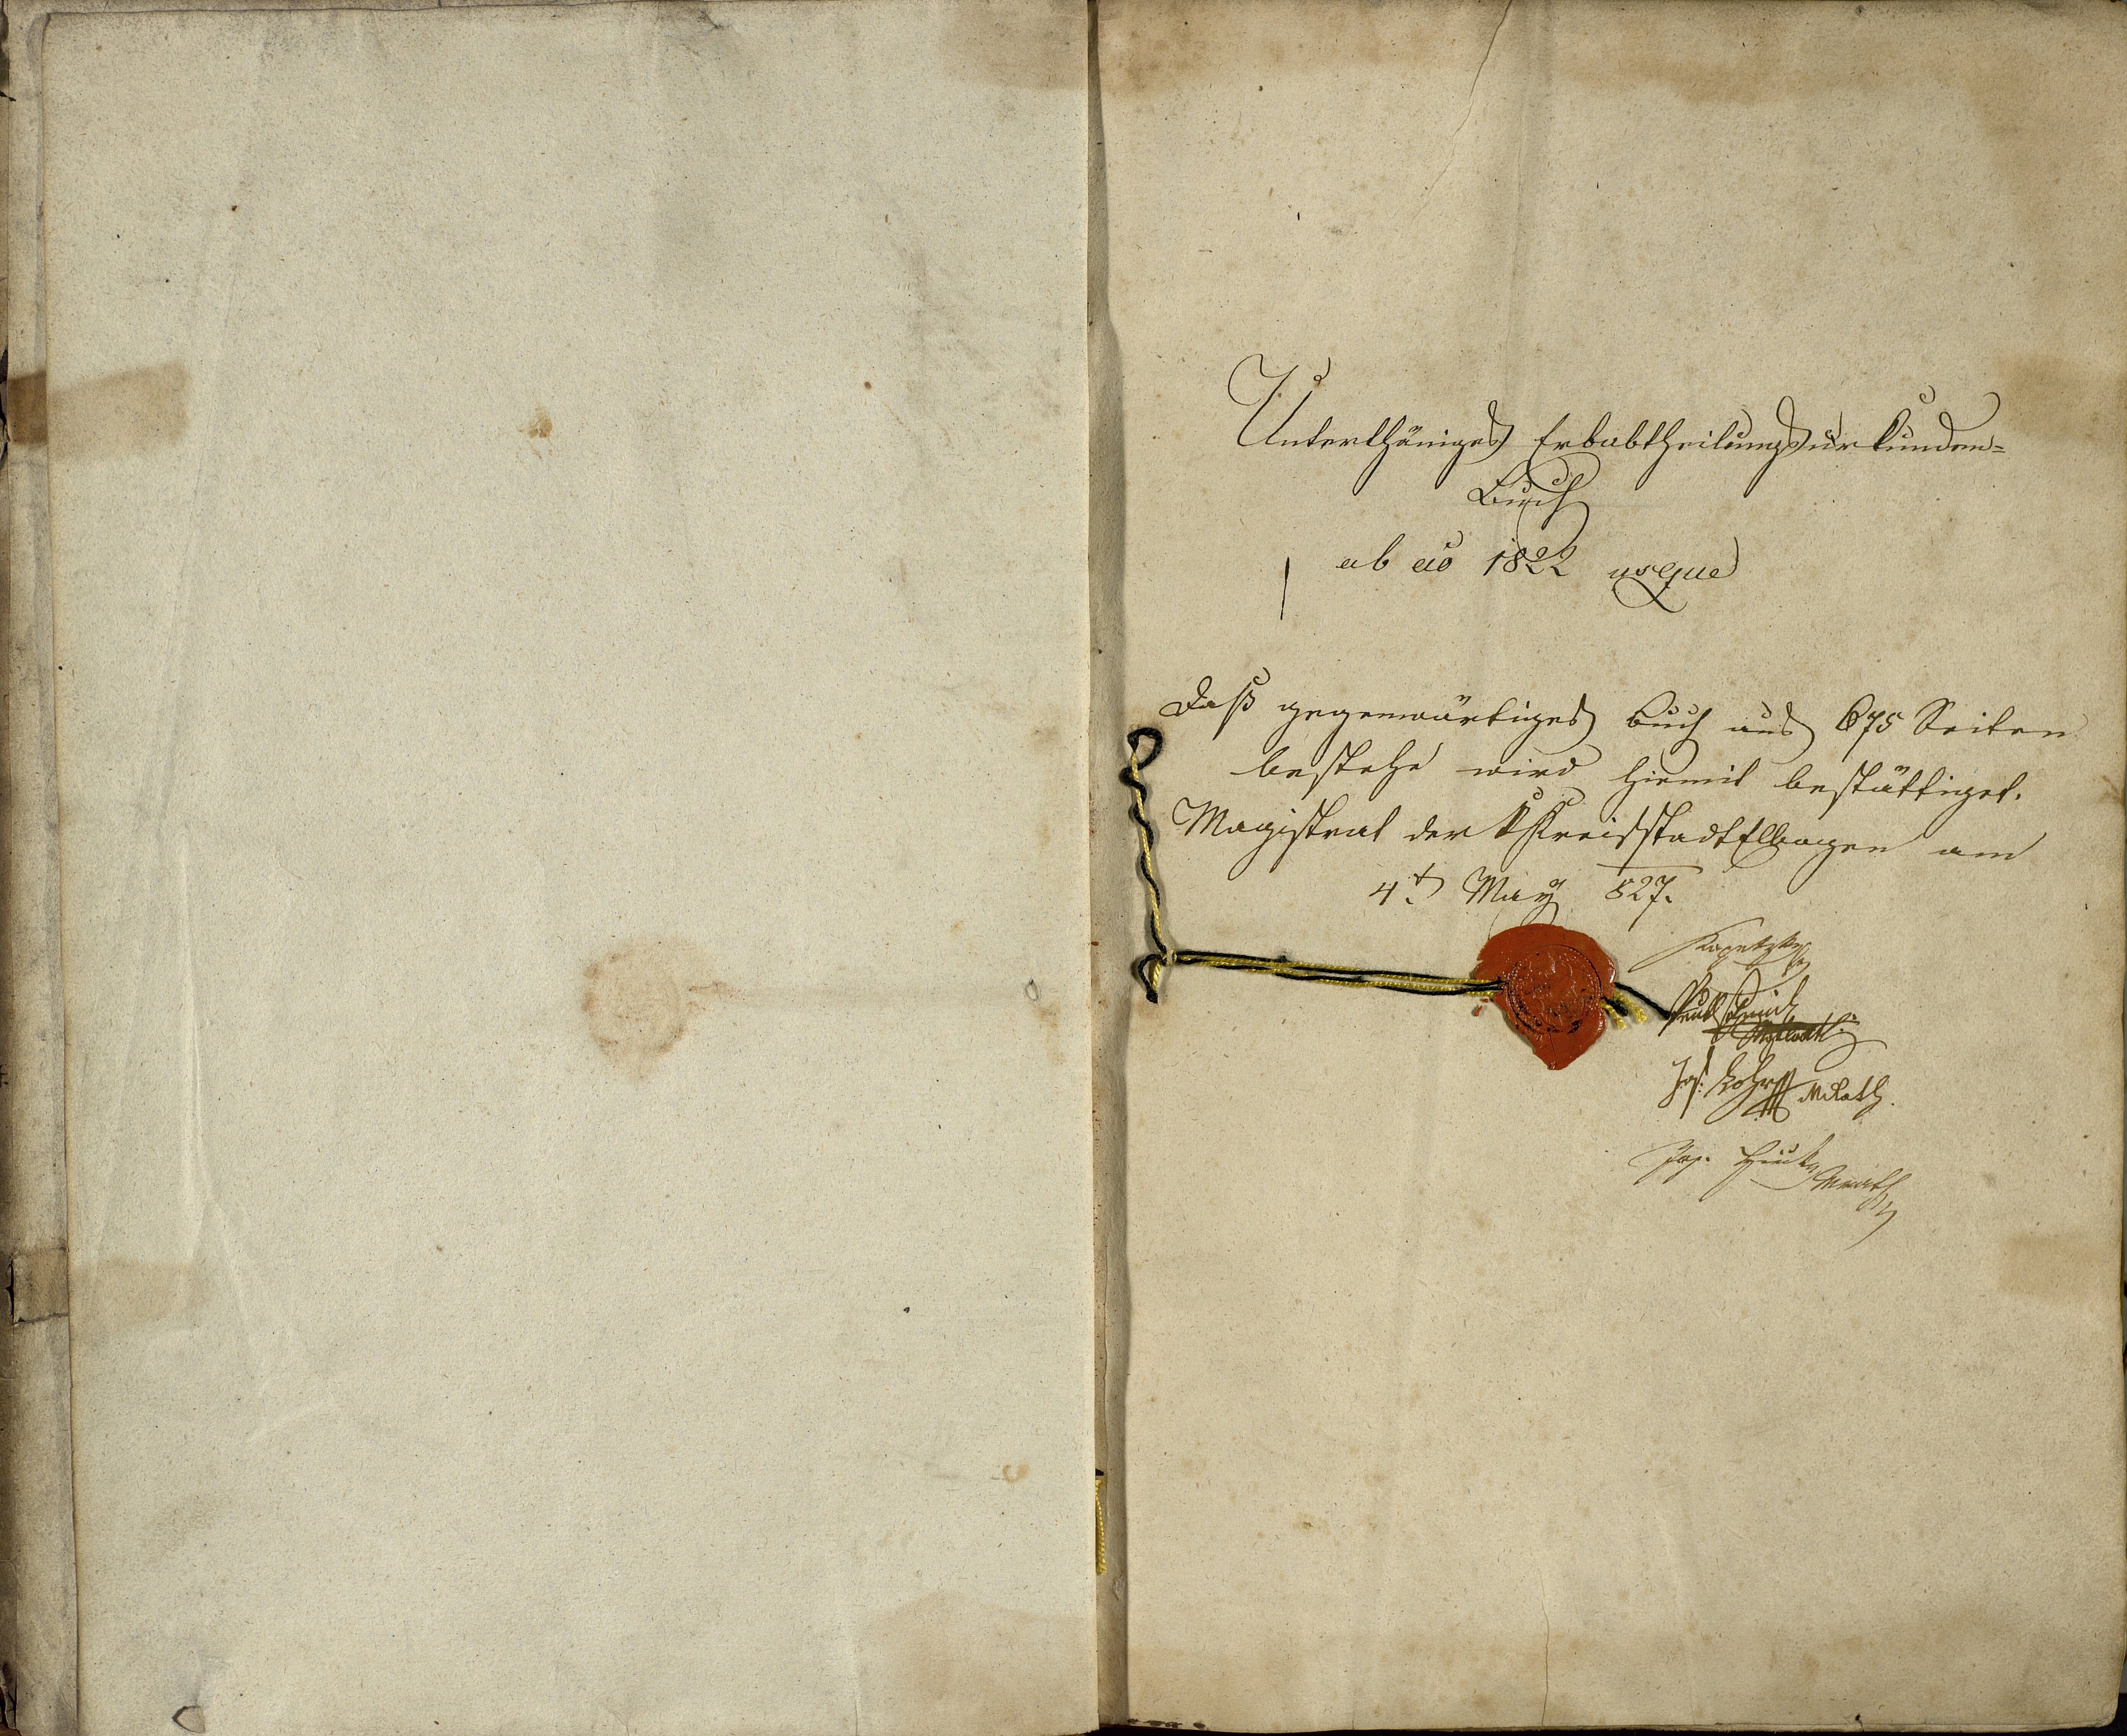 Unterthäniges Erbabtheilungsurkunden-
Buch
ab ao 1822 usque
Daß gegenwärtiges Buch aus 675 Seiten
bestehe wird hiemit bestättiget.
Magistrat der K Kreisstadt Ellbogen am
4t May 827.
Kopetzky
Jos: MRath.
Jos. Mrath